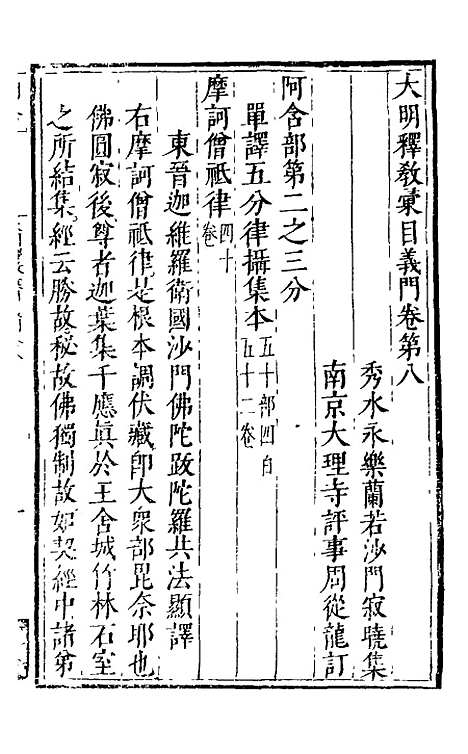 大明釋教彙目義門卷第八
秀水永樂蘭若沙門寂曉集
南京大理寺評事周從龍訂
阿含部第二之三分
單譯五分律攝集本五十部四百五十二卷
摩訶僧祇律四十卷
東晉迦維羅衛國沙門佛陀跋陀羅共法顯譯
右摩訶僧祇律是根本調伏藏即大衆部毘奈耶也
佛圓寂後尊者迦葉集千應眞於王舍城竹林石室
之所結集經云勝故秘故佛獨制故如契經中諸弟